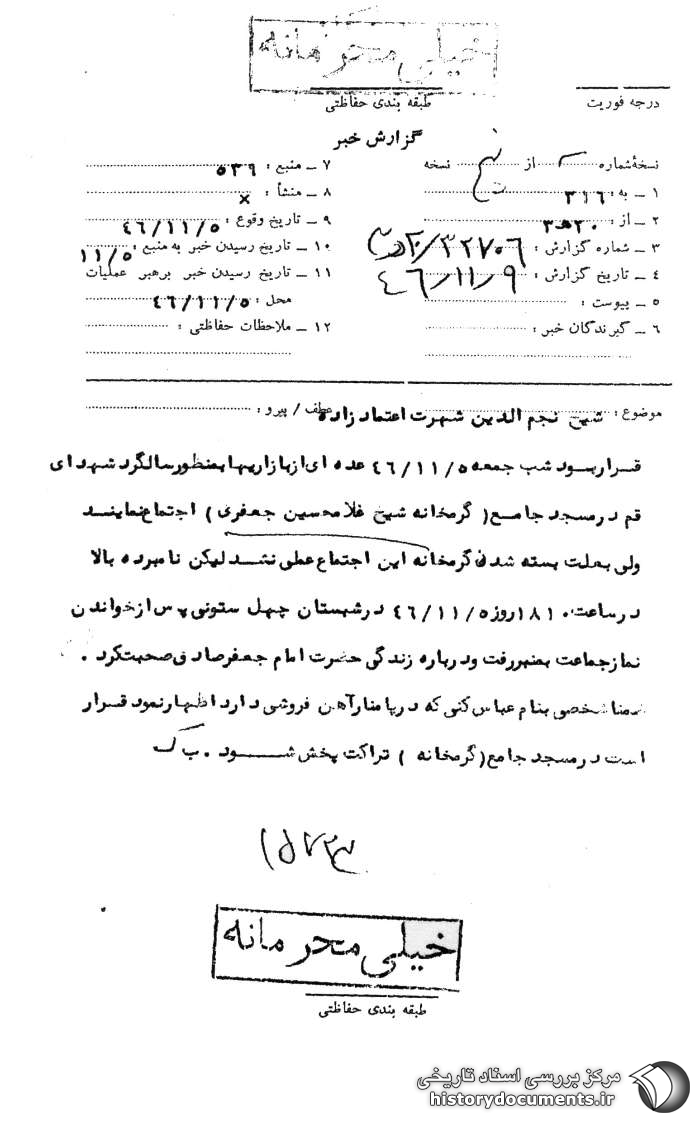 خیلی محرمانه
طبقه بندی حفاظتی
درجه فوریت
گزارش خبر
نسخهٔ شماره از نسخه
۱ ــ به : ۳۱۶
۲ ــ از : ۲۰ هـ ۳
۳ ــ شماره گزارش : ۳۲۷۰۶/
۴ ــ تاریخ گزارش : ۴۶/۱۱/۹
۵ ــ پیوست :
۶ ــ گیرندگان خبر :
۷ ــ منبع : ۵۳۶
۸ ــ منشأ : x
۹ ــ تاریخ وقوع : ۴۶/۱۱/۵
۱۰ ــ تاریخ رسیدن خبر به منبع : ۱۱/۵
۱۱ ــ تاریخ رسیدن خبر برهبر عملیات
محل : ۴۶/۱۱/۵
۱۲ ــ ملاحظات حفاظتی :
موضوع : شیخ نجم الدین شهرت اعتماد زاده عطف / پیرو :
قرار بود شب جمعه ۴۶/۱۱/۵ عده ای از بازاریها بمنظور سالگرد شهدای
قم در مسجد جامع (گرمخانه شیخ غلامحسین جعفری) اجتماع نمایند
ولی بعلت بسته شدن گرمخانه این اجتماع عملی نشد لیکن نامبرده بالا
در ساعت ۱۸۱۰ روز ۴۶/۱۱/۵ در شبستان چهل ستونی پس از خواندن
نماز جماعت بمنبر رفت و درباره زندگی حضرت امام جعفر صادق صحبت کرد .
ضمنا شخصی بنام عباس کنی که در پامنار آهن فروشی دارد اظهار نمود قرار
است در مسجد جامع (گرمخانه ) تراکت پخش شود . ب ک
خیلی محرمانه
طبقه بندی حفاظتی
مرکز بررسی اسناد تاریخی
historydocuments.ir